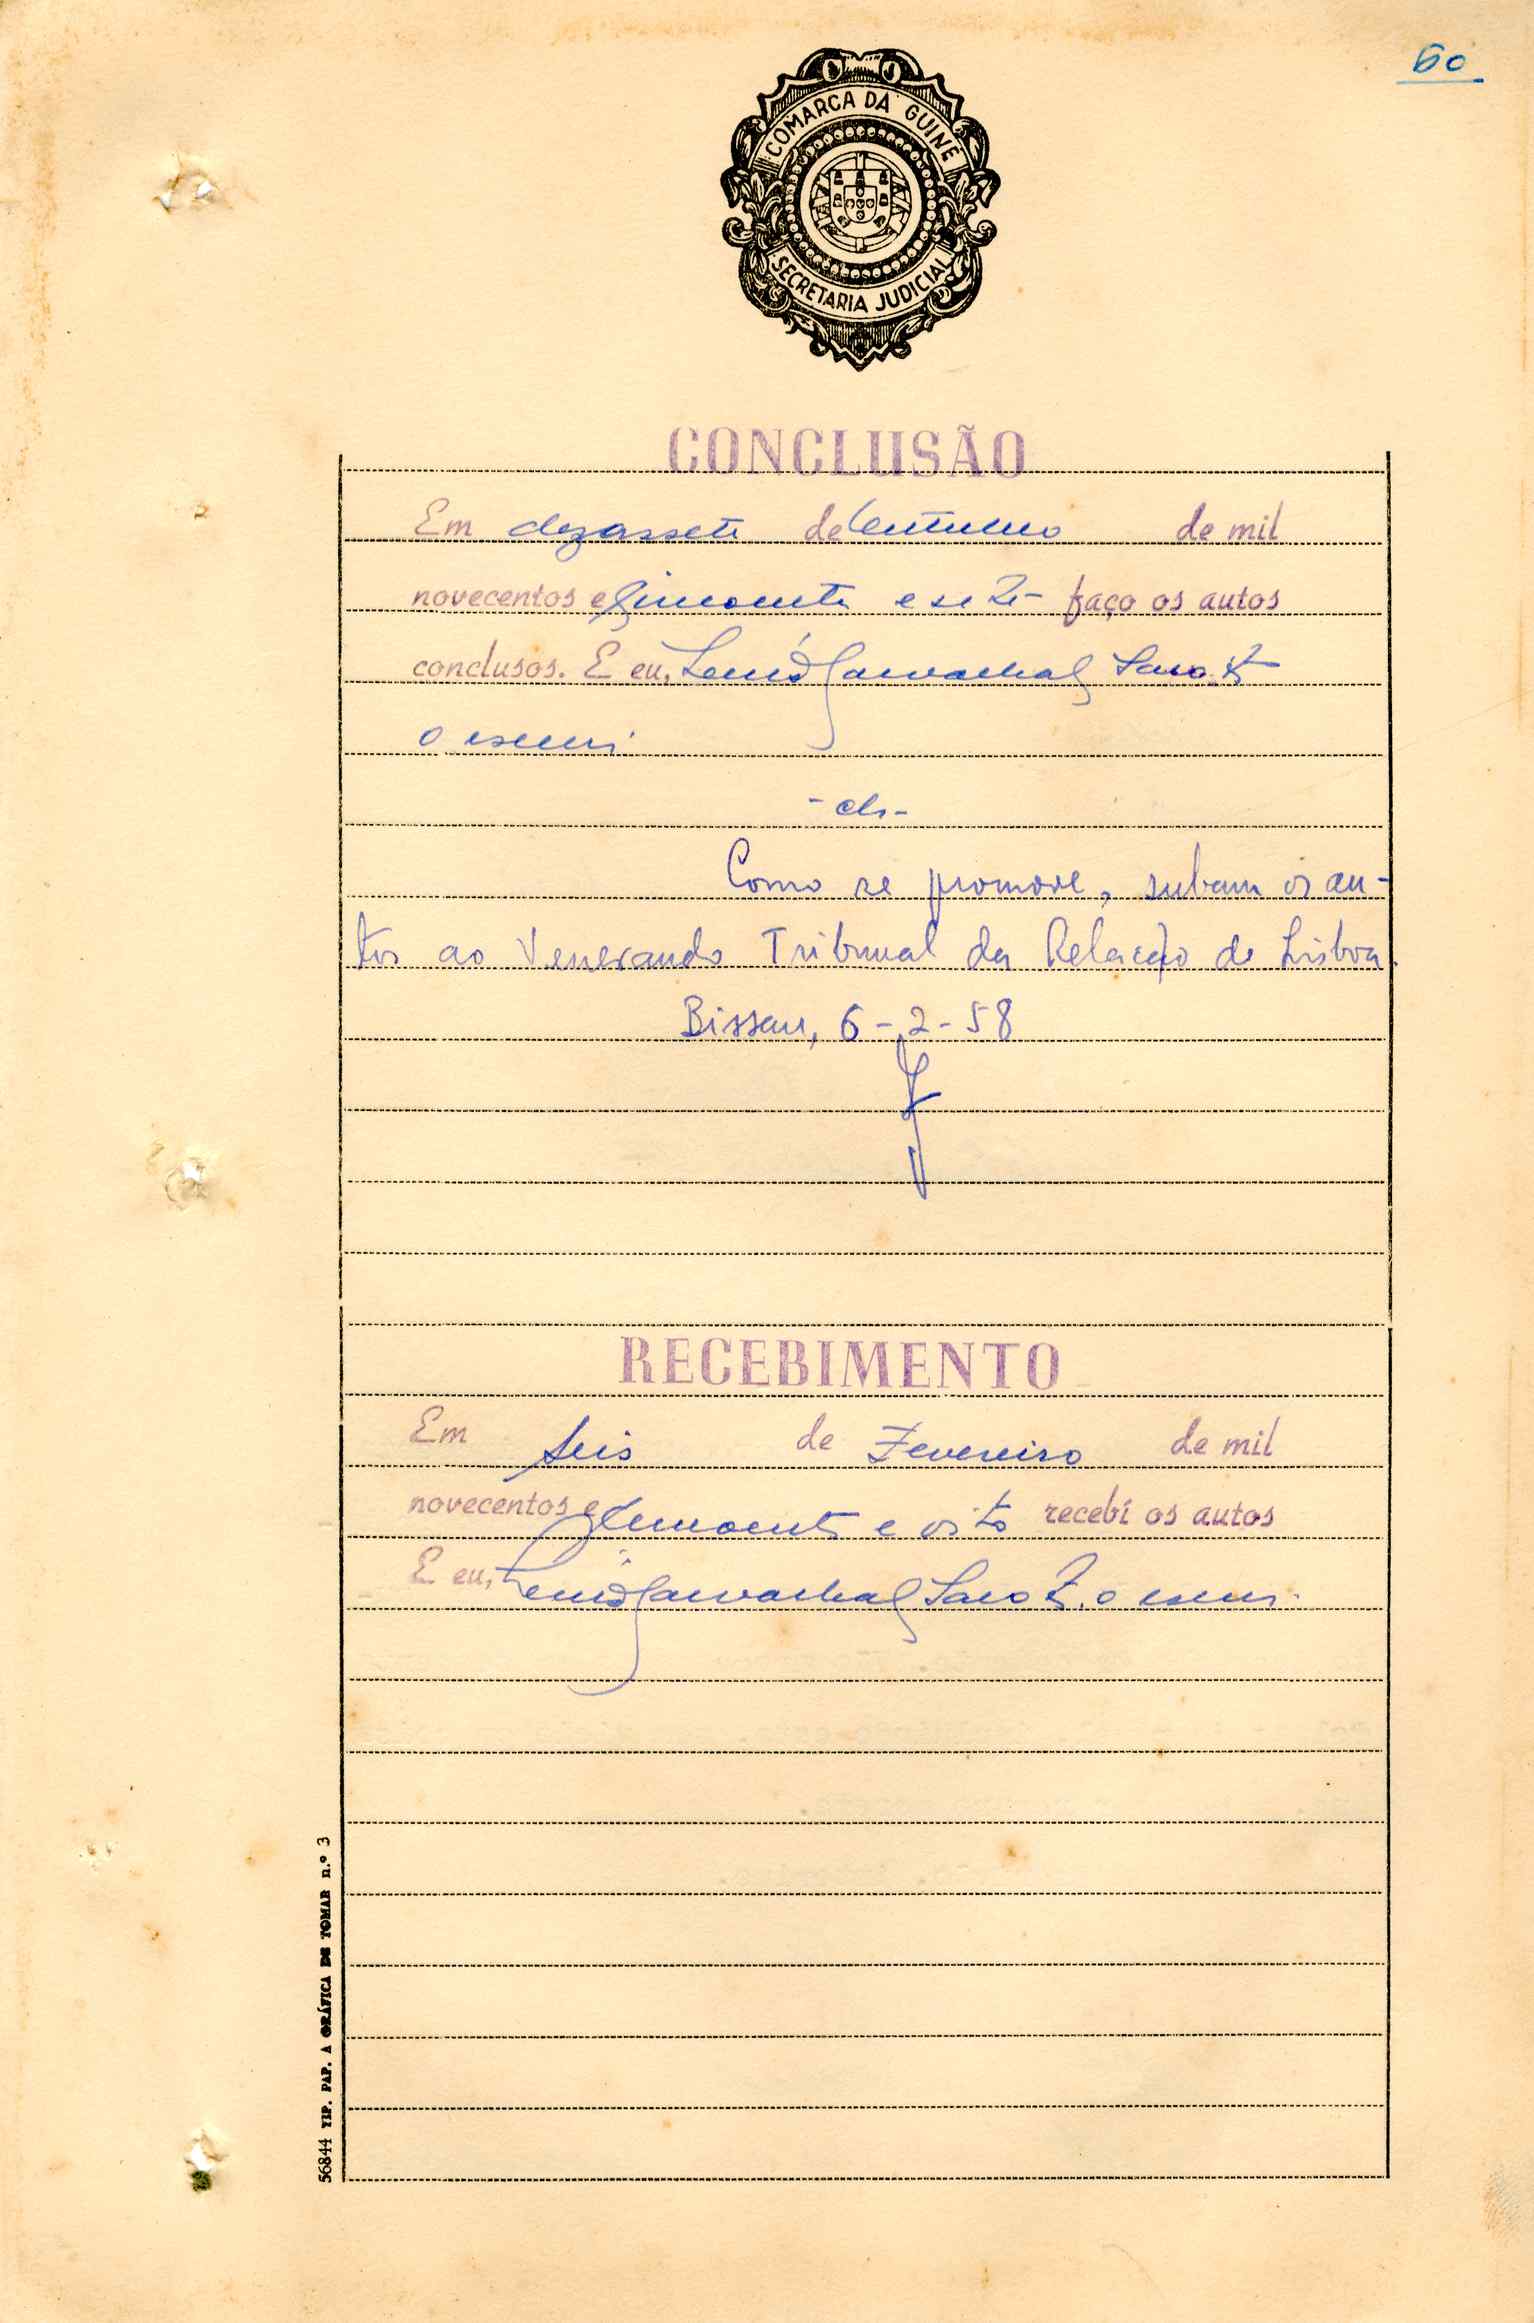 60
COMARCA DA GUINÉ
SECRETARIA JUDICIAL
CONCLUSÃO
Em dezassete de de mil
novecentos e cincoenta e sete faço os autos
conclusos. E eu,
o escriv.
- cls -
Como se promove, subam os au-
tos ao Venerando Tribunal da Relação de Lisboa.
Bissau, 6-2-58
RECEBIMENTO
Em seis de Fevereiro de mil
novecentos e cincoenta e oito recebi os autos
E eu, o escriv.
56844 TIP. PAP. A GRÁFICA DE TOMAR n.º 3